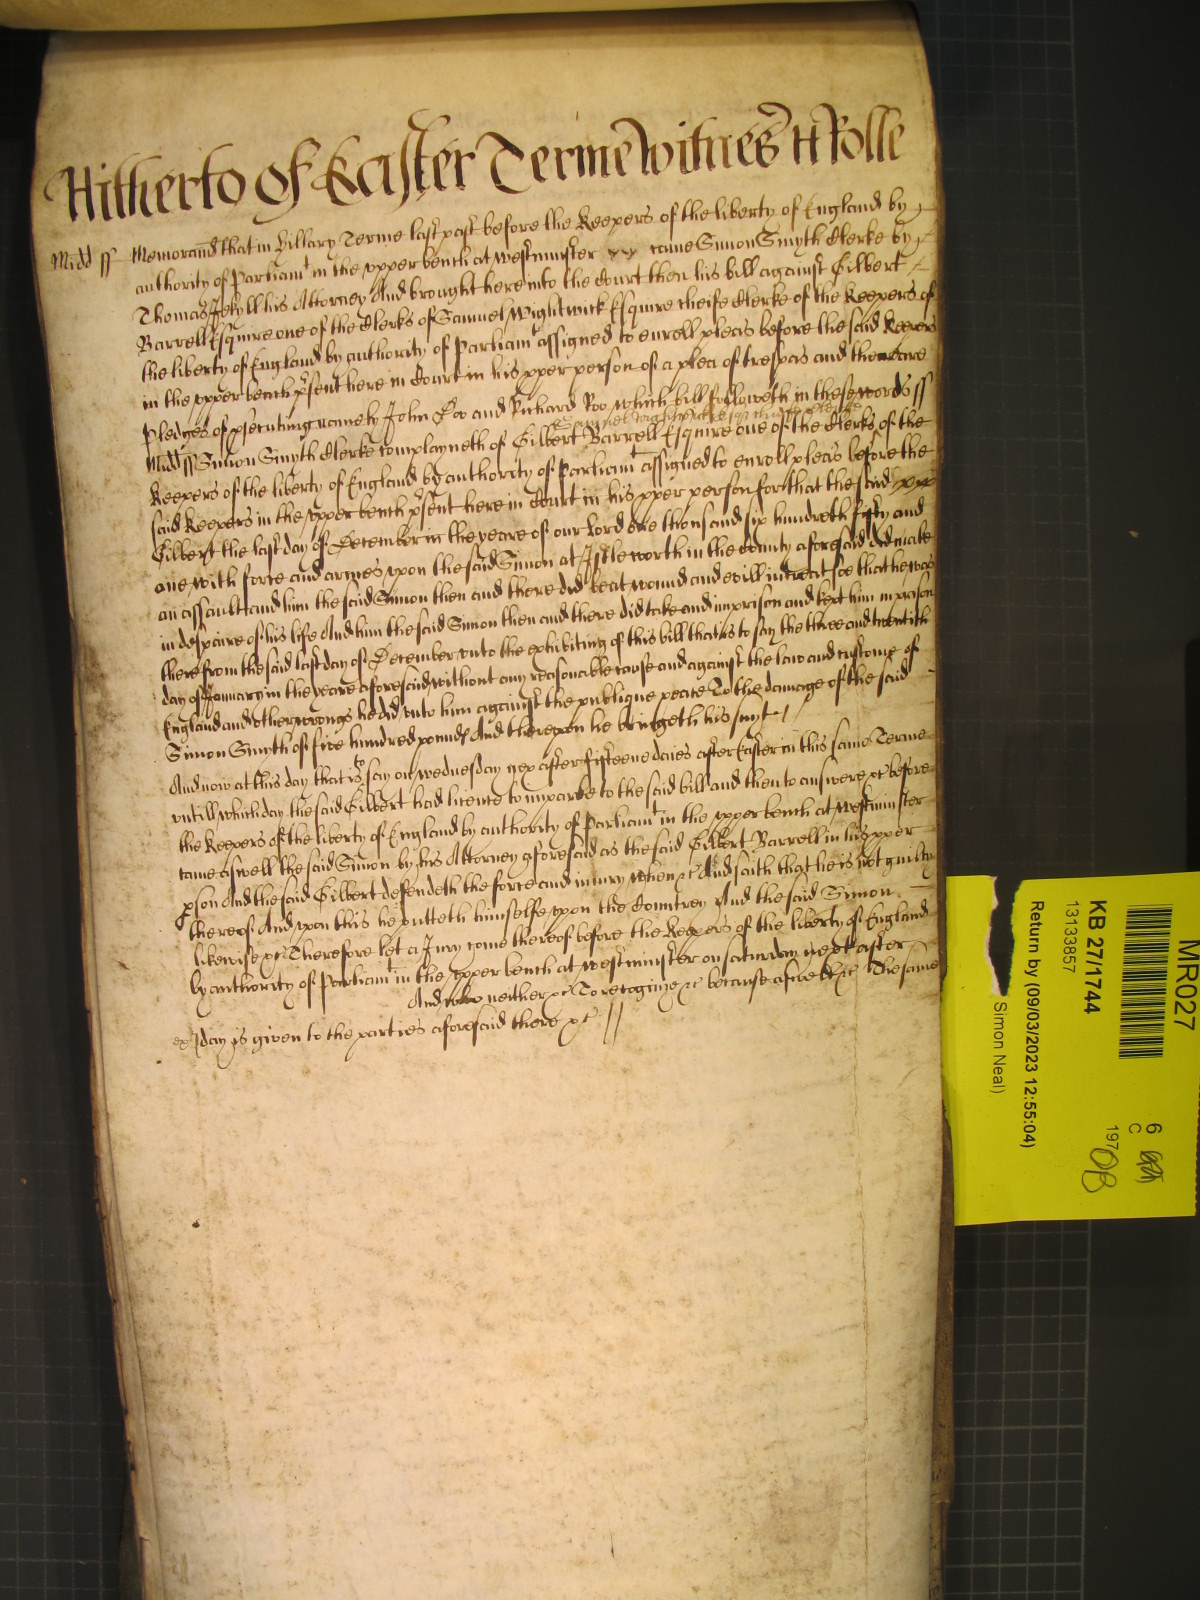 Hitherto Of Easter Terme Witnes H Rolle
Midd ss Memorand that in Hillary Terme last past before the Keepers of the liberty of England by
authority of Parliamt in the upper bench at Westminster came Simon Smyth Clerke by
Thomas Jekyll his Attorney And brought here into the Court then his bill against Gilbert
Barrell Esquire one of the Clerks of Samuel Wightwick Esquire cheife Clerke of the Keepers of
the liberty of England by authority of Parliamt assigned to enroll pleas before the said Keepers
in the upper bench psent here in Court in his pper person of a plea of trespas and there are
pledges of psecuting namely John Doo and Richard Roo which bill followeth in these words ss
Samuel Wightwick Esqr cheife Clerke
Midd ss Simon Smyth Clerke complayneth of Gilbert Barrell Esquire one of the Clerks of the
Keepers of the liberty of England by authority of Parliamt assigned to enroll pleas before the
said Keepers in the upper bench psent here in Court in his pper person for that the said
Gilbert the last day of December in the yeare of our Lord one thousand six hundreth fifty and
one with force and armes upon the said Simon at Istleworth in the County aforesaid did make
an assault and him the said Simon then and there did beat wound and evill intreat soe that he was
in despaire of his life And him the said Simon then and there did take and imprison and kept him in prison
there from the said last day of December unto the exhibiting of this bill that is to say the three and twentith
day of January in the yeare aforesaid without any reasonable cause and against the law and custome of
England and other wrongs he did unto him against the publique peace To the damage of the said
Simon Smyth of five hundred pounds And thereupon he bringeth his suyt
And now at this day that is to say on Wednesday nex after fifteene daies after Easter in this same Terme
untill which day the said Gilbert had licence to imparle to the said bill and then to answere &c before
the Keepers of the liberty of England by authority of Parliamt in the upper bench at Westminster
came aswell the said Simon by his Attorney aforesaid as the said Gilbert Barrell in his pper
pson And the said Gilbert defendeth the force and iniury when &c And saith that he is not guilty
thereof And upon this he putteth himselfe upon the Countrey And the said Simon
likewise &c Therefore let a Jury come thereof before the Keepers of the liberty of England
by authority of Parliamt in the upper bench at Westminster on saturday next after
And who neither &c To recognize &c because aswell &c The same
ex day is given to the parties aforesaid there &c
MR027
KB 27/1744
13133857
Return by (09/03/2023 12:55:04)
Simon Neal)
6
C
197